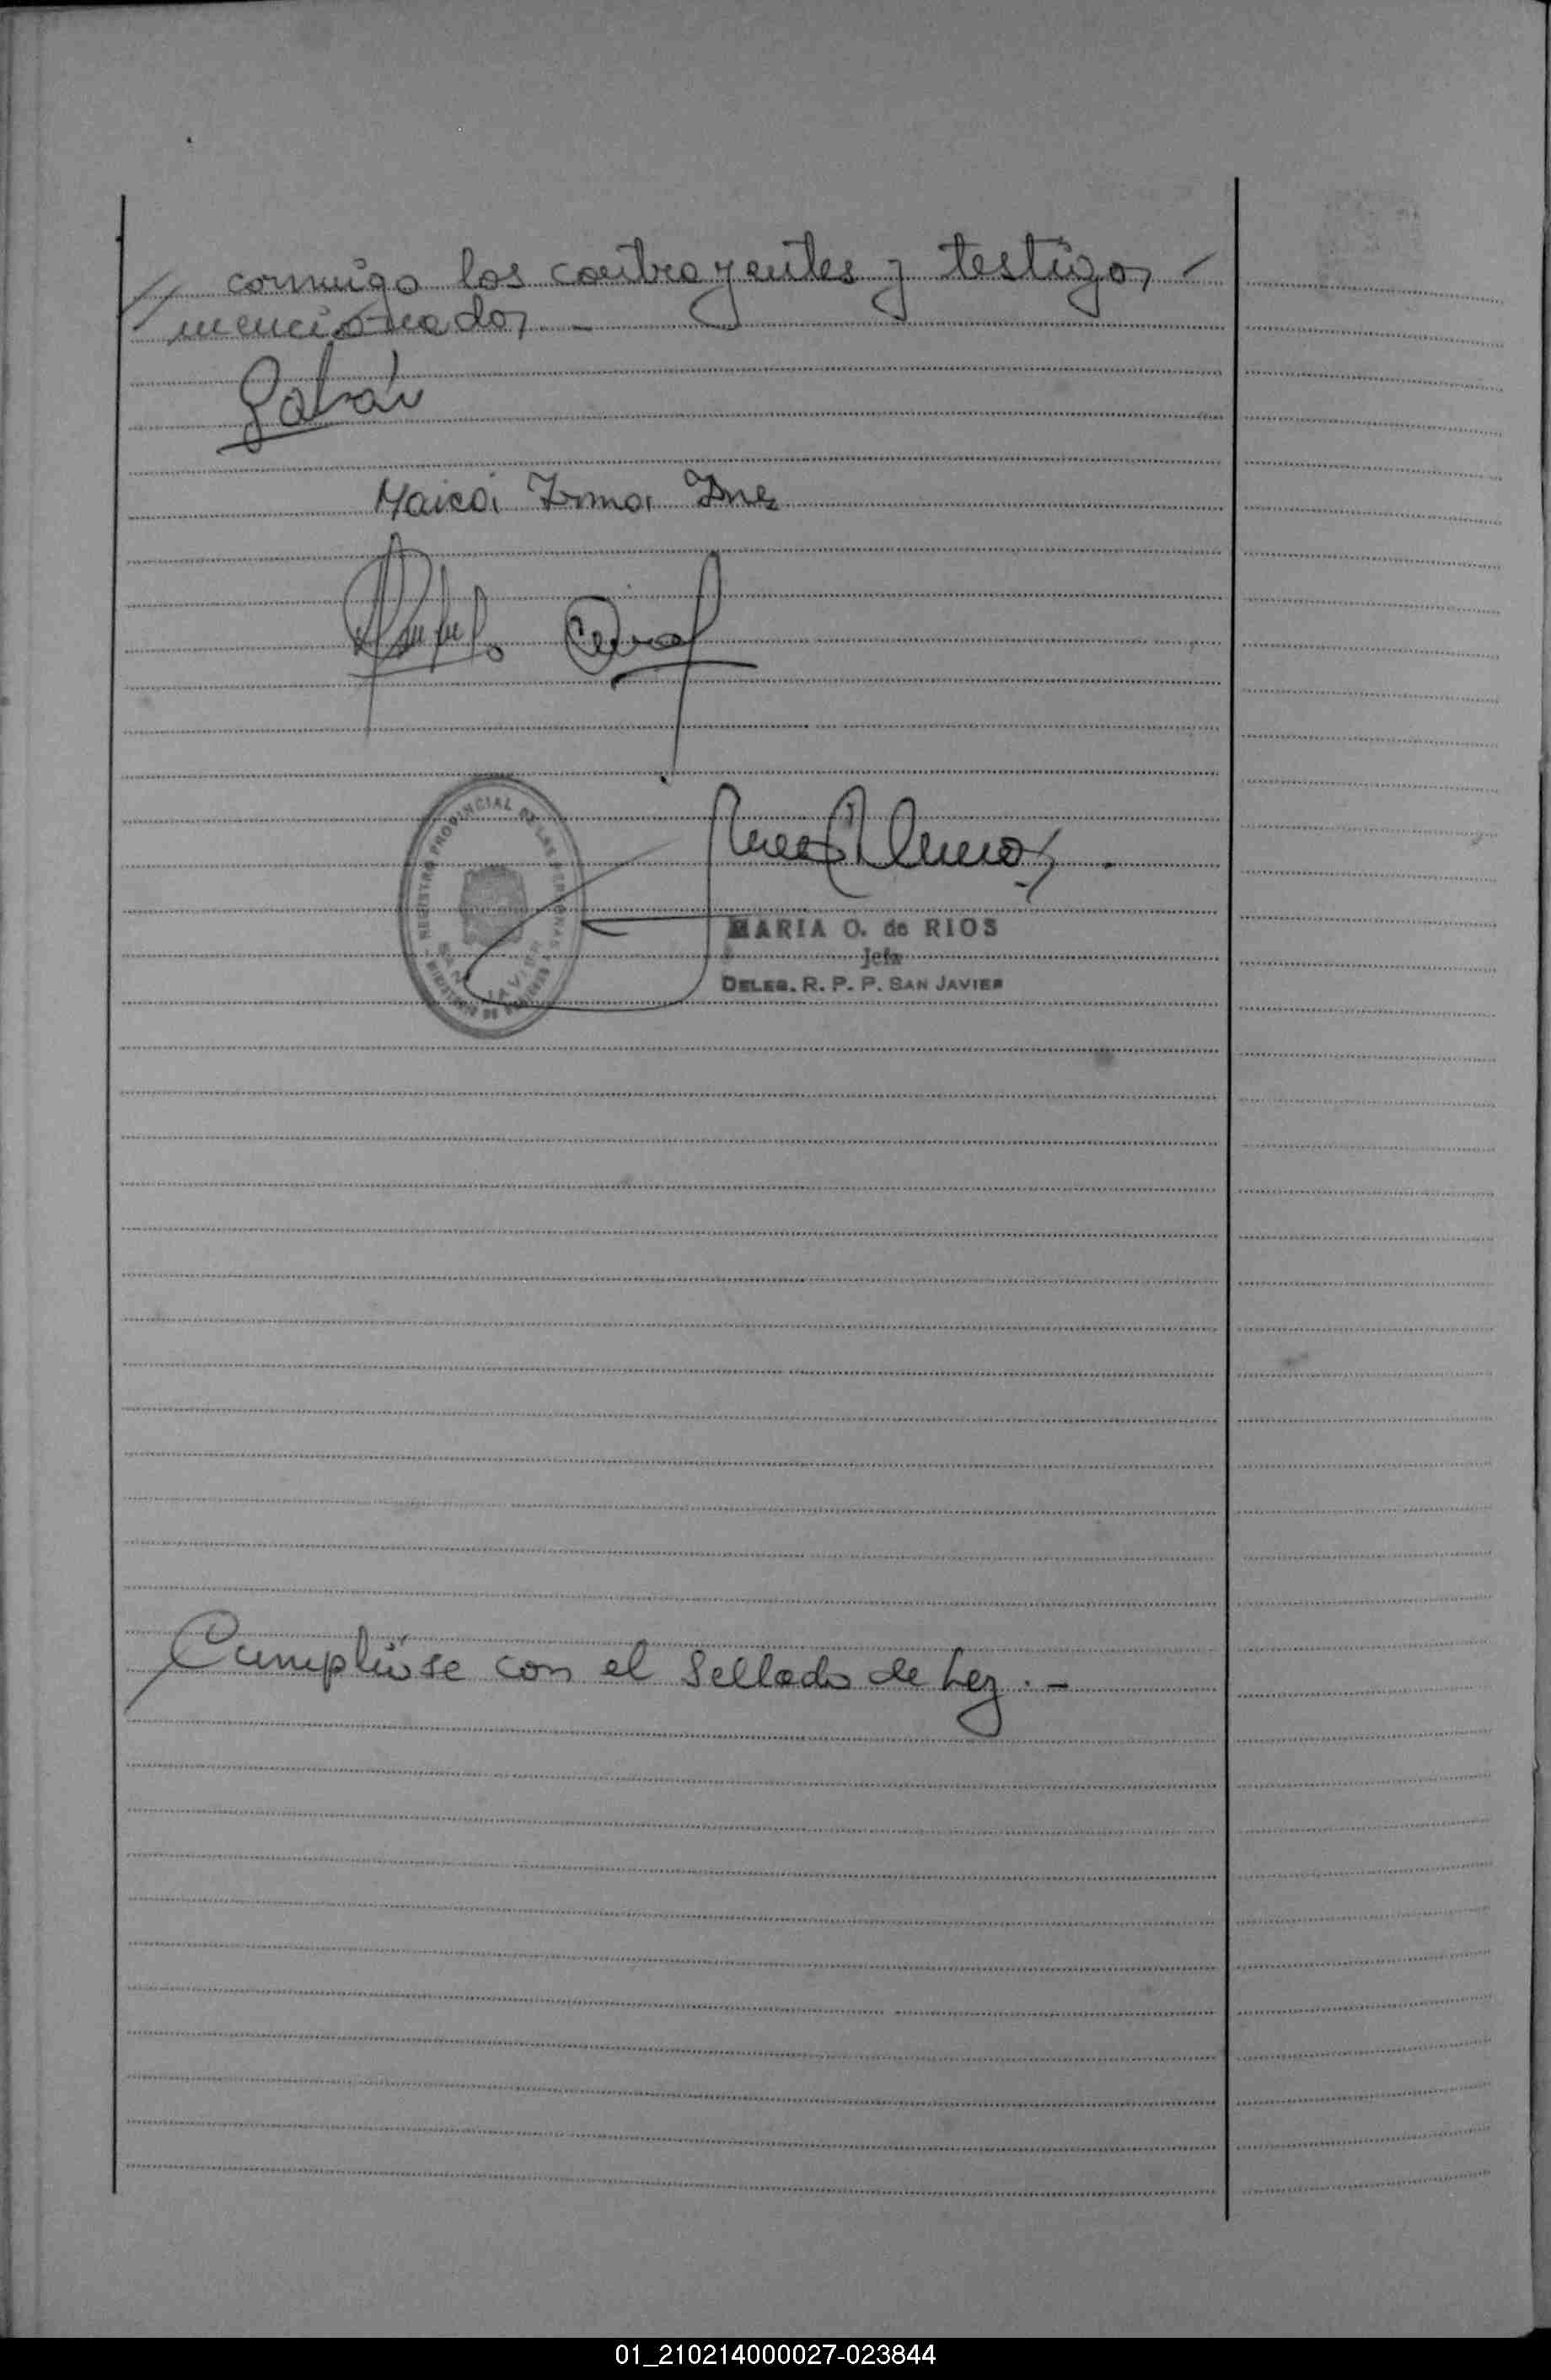 // conmigo los contrayentes y testigos -
mencionados. -
Galván
Maica Irma Inés
REGISTRO PROVINCIAL DE LAS PERSONAS
SAN JAVIER
MARIA O. de RIOS
Jefa
DELEG. R. P. P. SAN JAVIER
Cumplióse con el Sellado de Ley. -
01_210214000027-023844